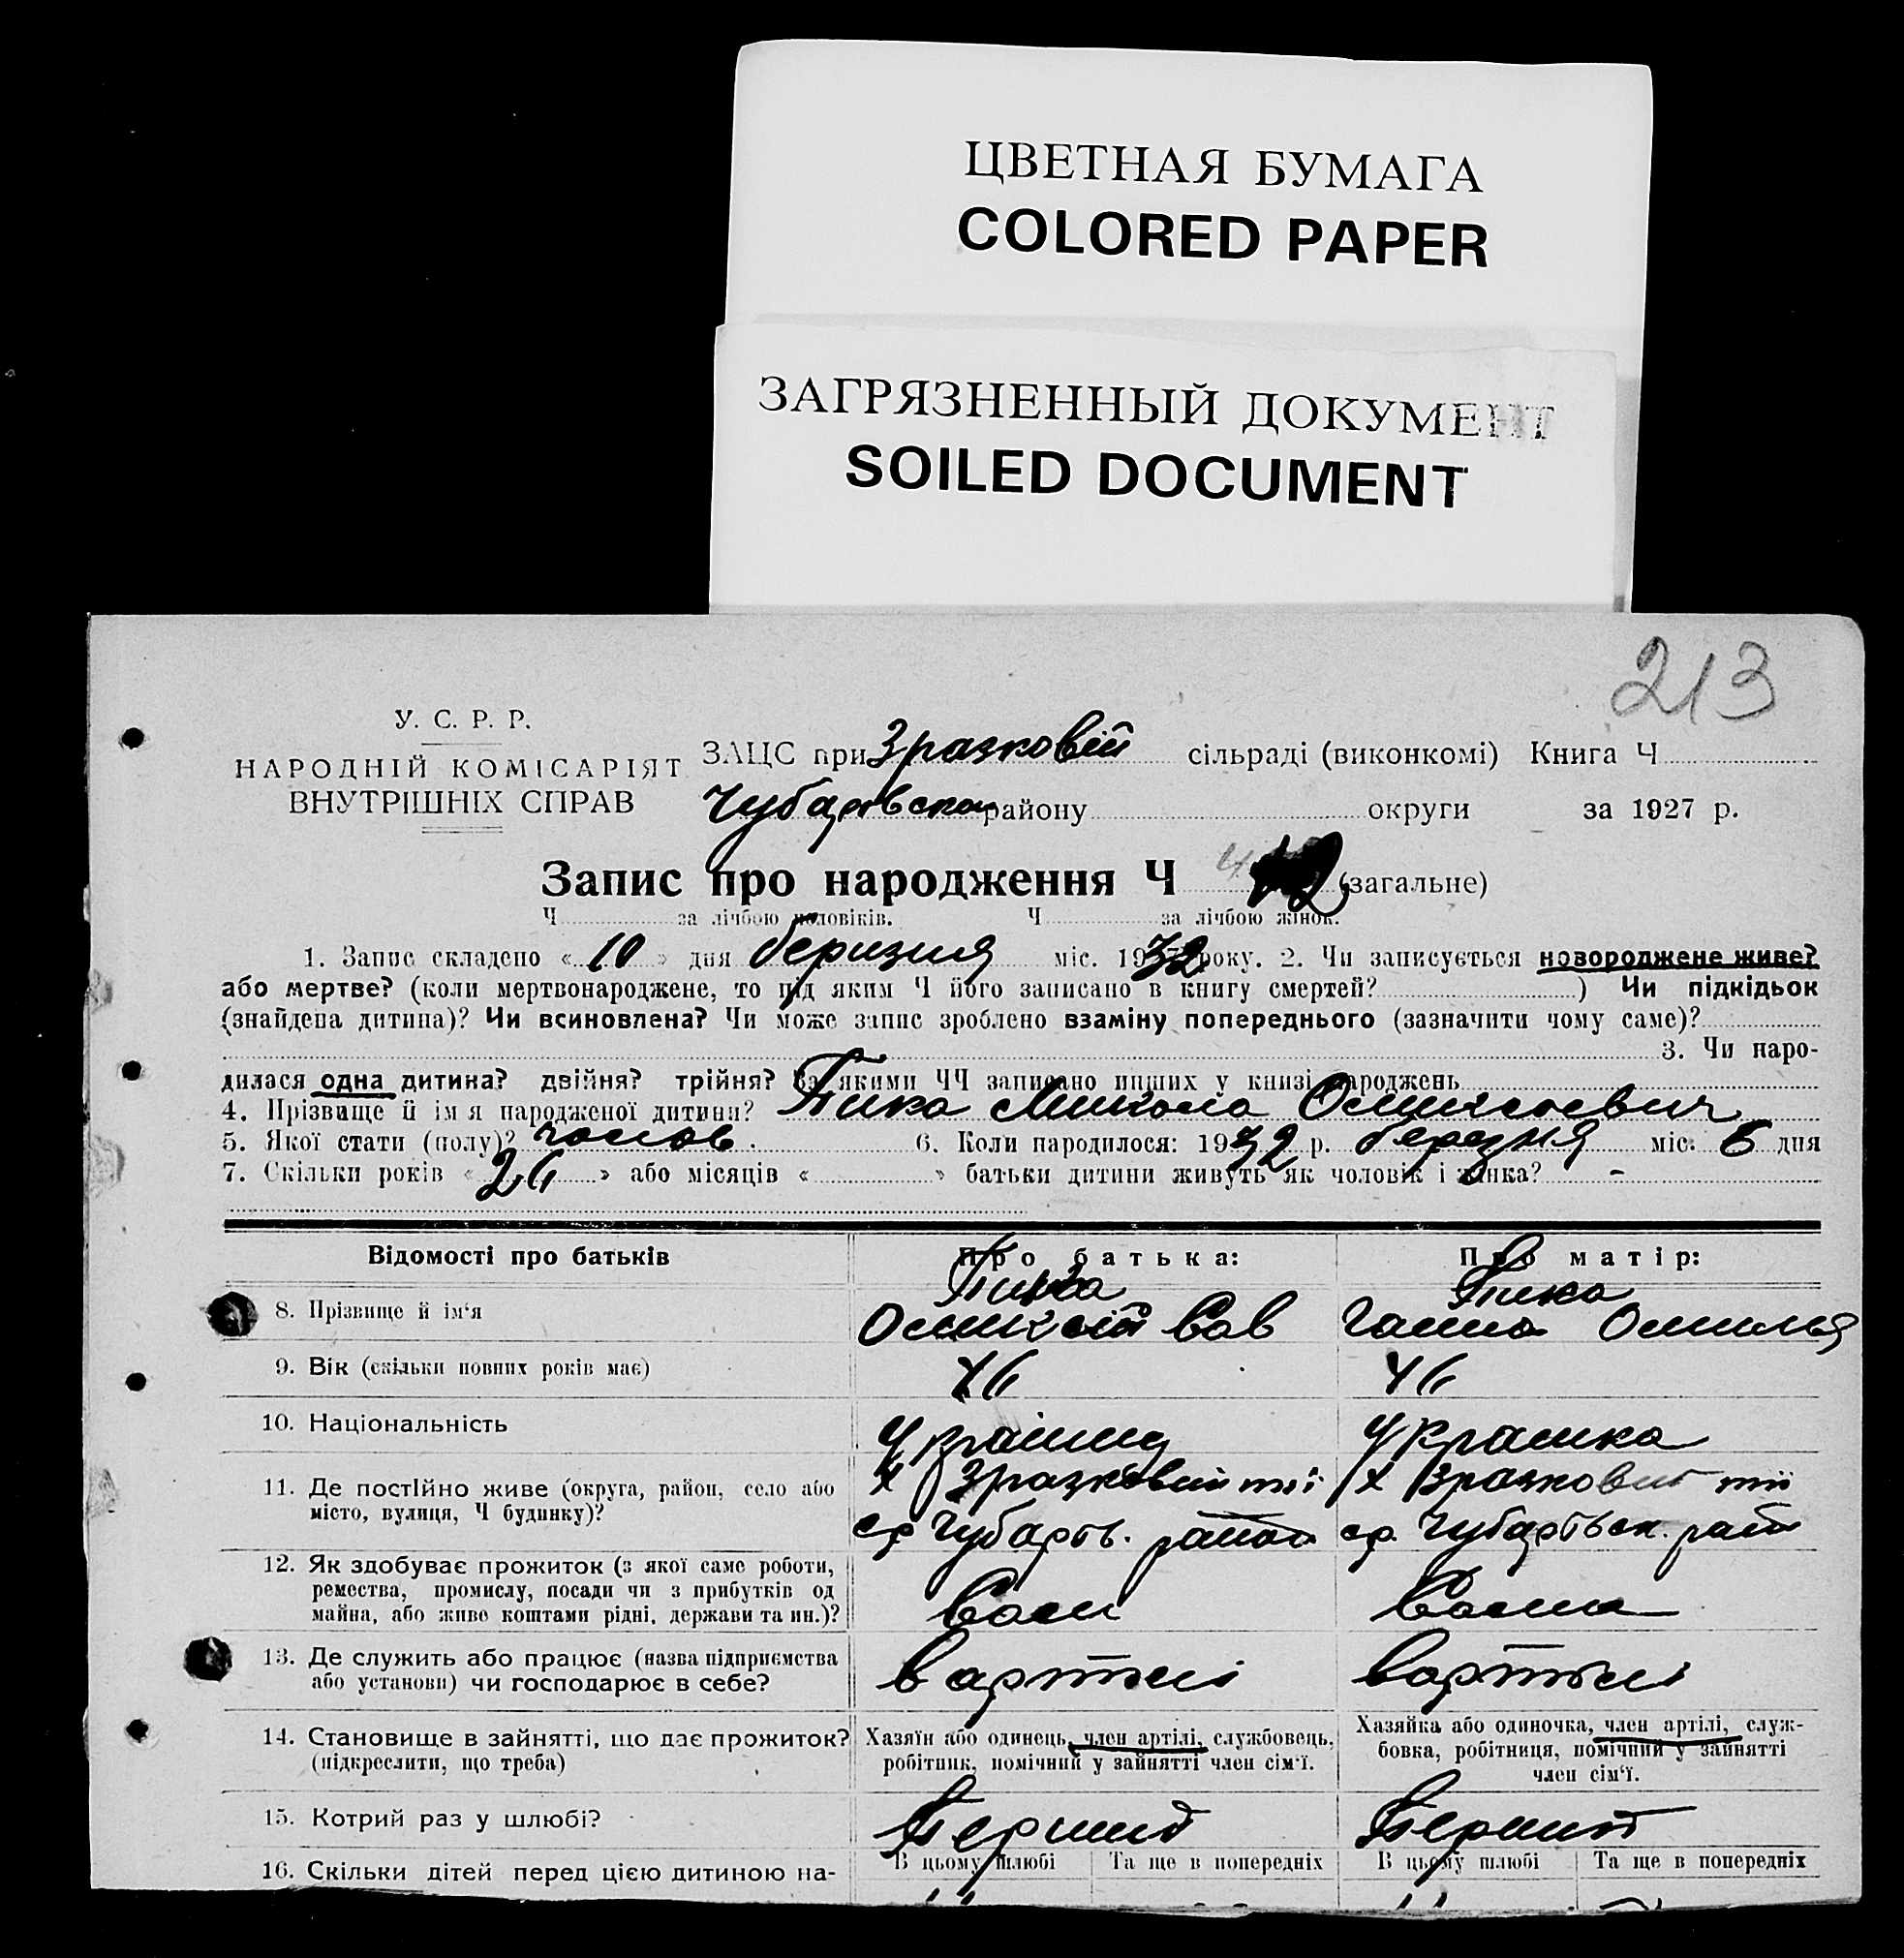 ЦВЕТНАЯ БУМАГА
COLORED PAPER
ЗАГРЯЗНЕННЫЙ ДОКУМЕНТ
SOILED DOCUMENT
213
У. С. Р. Р.
НАРОДНІЙ КОМІСАРІЯТ
ВНУТРІШНІХ СПРАВ
ЗАЦС при Зразковій сільраді (виконкомі) Книга Ч
району округи за 1927 р.
Запис про народження Ч (загальне)
Ч за лічбою чоловіків. Ч за лічбою жінок.
1. Запис складено « 10 » дня березня міс. 1932 року. 2. Чи записується новороджене живе?
або мертве? (коли мертвонароджене, то під яким Ч його записано в книгу смертей? ) Чи підкідьок
(знайдена дитина)? Чи всиновлена? Чи може запис зроблено взаміну попереднього (зазначити чому саме)?
3. Чи наро-
дилася одна дитина? двійня? трійня? За якими ЧЧ записано инших у книзі народжень
4. Прізвище й ім'я народженої дитини? Пика Микола
5. Якої стати (полу)? чолов. 6. Коли народилося: 1932 р. березня міс. 6 дня
7. Скільки років « 26 » або місяців « » батьки дитини живуть як чоловік і жінка? -
Відомості про батьків
Про батька:
Про матір:
8. Прізвище й ім'я
Пика
Пика
Ганна
9. Вік (скільки повних років має)
46
46
10. Національність
Українец
Украинка
11. Де постійно живе (округа, район, село або
місто, вулиця, Ч будинку)?
х Зразковий тії
х Зразковий тії
ср Чубарів. район
ср. Чубарівськ. рай
12. Як здобуває прожиток (з якої саме роботи,
ремества, промислу, посади чи з прибутків од
майна, або живе коштами рідні, держави та ин.)?
13. Де служить або працює (назва підприємства
або установи) чи господарює в себе?
в артілі
в артілі
14. Становище в зайнятті, що дає прожиток?
(підкреслити, що треба)
Хазяїн або одинець, член артілі, службовець,
робітник, помічний у зайнятті член сім'ї.
Хазяйка або одиночка, член артілі, служ-
бовка, робітниця, помічний у зайнятті
член сім'ї.
15. Котрий раз у шлюбі?
Перший
Перший
16. Скільки дітей перед цією дитиною на-
В цьому шлюбі
Та ще в попередніх
В цьому шлюбі
Та ще в попередніх